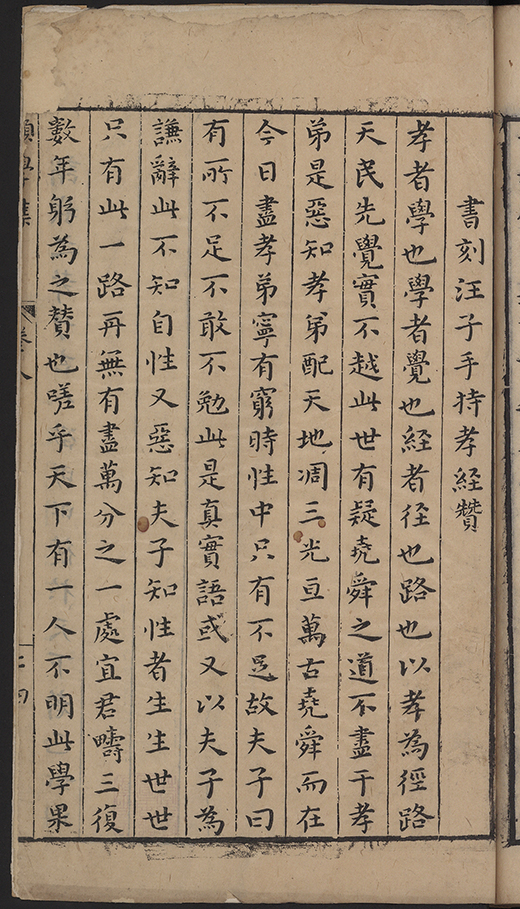 書刻汪子手持孝經贊
孝者學也學者覺也経者径也路也以孝為徑路
天民先覺實不越此世有疑堯舜之道不盡于孝
弟是惡知孝弟配天地凋三光亘萬古堯舜而在
今日盡孝弟寧有窮時性中只有不足故夫子曰
有所不足不敢不勉此是真實語或又以夫子為
謙辭此不知自性又惡知夫子知性者生生世世
只有此一路再無有盡萬分之一處宜君疇三復
數年躬為之賛也嗟乎天下有一人不明此學果
學集 卷八